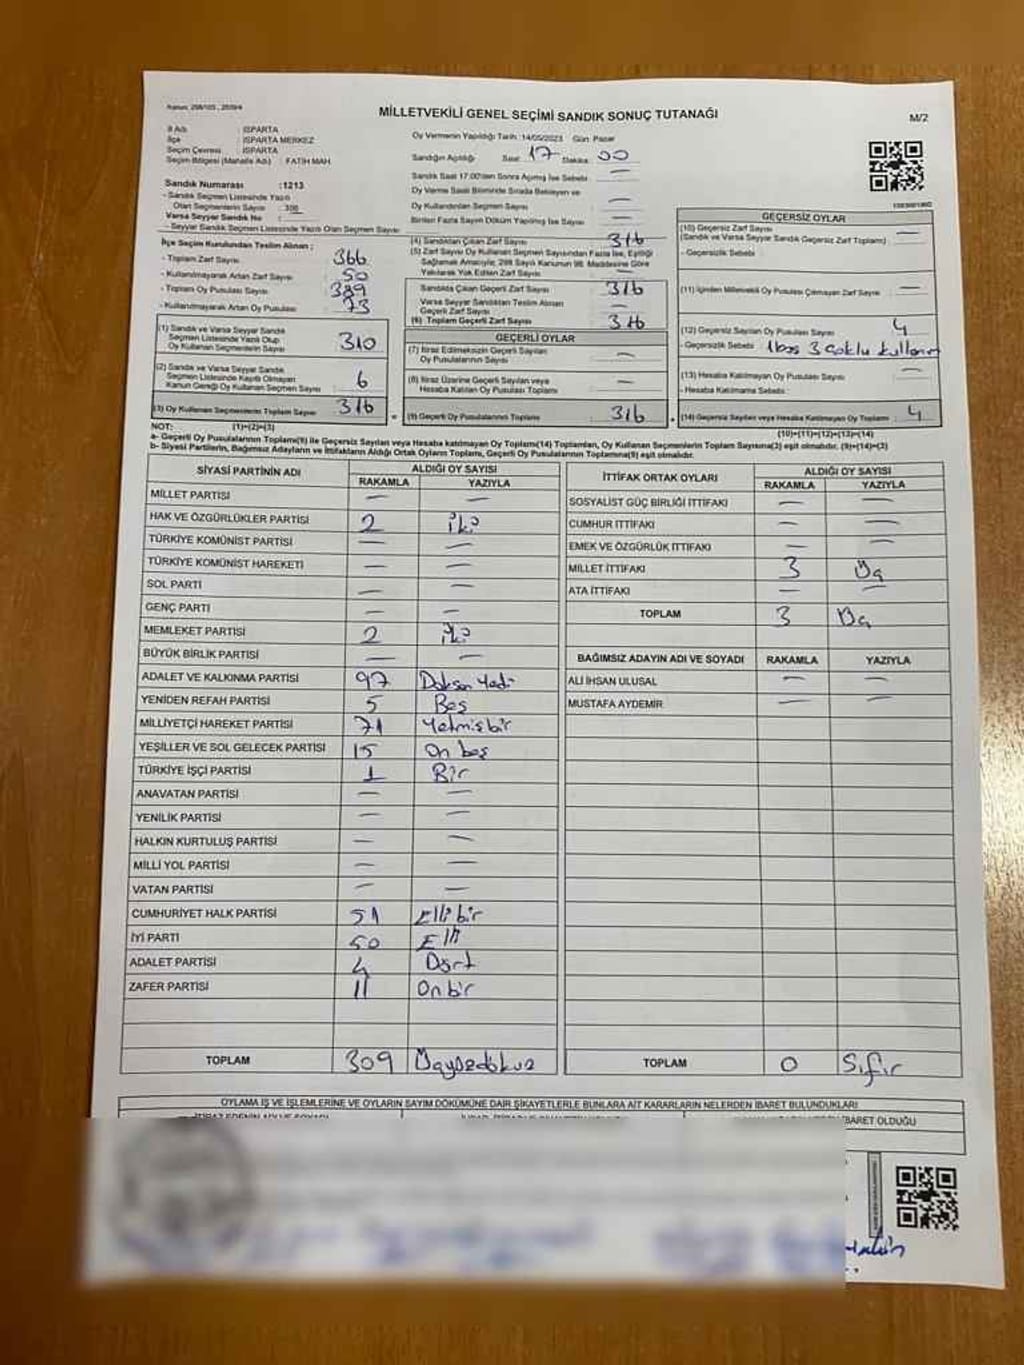 Kanun: 298/105 , 2839/4
MİLLETVEKİLİ GENEL SEÇİMİ SANDIK SONUÇ TUTANAĞI
M/2
İl Adı : ISPARTA
İlçe : ISPARTA MERKEZ
Seçim Çevresi : ISPARTA
Seçim Bölgesi (Mahalle Adı) : FATİH MAH.
Oy Vermenin Yapıldığı Tarih :14/05/2023 Gün: Pazar
Sandığın Açıldığı Saat 17 Dakika 00
Sandık Saat 17:00'den Sonra Açılmış İse Sebebi —
Oy Verme Saati Bitiminde Sırada Bekleyen ve
Oy Kullandırılan Seçmen Sayısı —
Birden Fazla Sayım Döküm Yapılmış İse Sayısı —
Sandık Numarası :1213
- Sandık Seçmen Listesinde Yazılı
Olan Seçmenlerin Sayısı :
Varsa Seyyar Sandık No :
- Seyyar Sandık Seçmen Listesinde Yazılı Olan Seçmen Sayısı:
İlçe Seçim Kurulundan Teslim Alınan ;
- Toplam Zarf Sayısı 366
- Kullanılmayarak Artan Zarf Sayısı 50
- Toplam Oy Pusulası Sayısı 389
- Kullanılmayarak Artan Oy Pusulası 73
(1) Sandık ve Varsa Seyyar Sandık
Seçmen Listesinde Yazılı Olup
Oy Kullanan Seçmenlerin Sayısı 310
(2) Sandık ve Varsa Seyyar Sandık
Seçmen Listesinde Kayıtlı Olmayan
Kanun Gereği Oy Kullanan Seçmen Sayısı 6
(3) Oy Kullanan Seçmenlerin Toplam Sayısı 316
(4) Sandıktan Çıkan Zarf Sayısı 316
(5) Zarf Sayısı Oy Kullanan Seçmen Sayısından Fazla İse, Eşitliği
Sağlamak Amacıyla, 298 Sayılı Kanunun 98. Maddesine Göre
Yakılarak Yok Edilen Zarf Sayısı —
Sandıkta Çıkan Geçerli Zarf Sayısı 316
Varsa Seyyar Sandıktan Teslim Alınan
Geçerli Zarf Sayısı —
(6) Toplam Geçerli Zarf Sayısı 316
GEÇERLİ OYLAR
(7) İtiraz Edilmeksizin Geçerli Sayılan
Oy Pusulalarının Sayısı —
(8) İtiraz Üzerine Geçerli Sayılan veya
Hesaba Katılan Oy Pusulası Toplamı —
= (9) Geçerli Oy Pusulalarının Toplamı 316 +
GEÇERSİZ OYLAR
(10) Geçersiz Zarf Sayısı —
(Sandık ve Varsa Seyyar Sandık Geçersiz Zarf Toplamı)
- Geçersizlik Sebebi :
(11) İçinden Milletvekili Oy Pusulası Çıkmayan Zarf Sayısı —
(12) Geçersiz Sayılan Oy Pusulası Sayısı 4
- Geçersizlik Sebebi 1 boş 3 çoklu kullanım
(13) Hesaba Katılmayan Oy Pusulası Sayısı —
- Hesaba Katılmama Sebebi :
(14) Geçersiz Sayılan veya Hesaba Katılmayan Oy Toplamı 4
NOT: (1)+(2)=(3)
(10)+(11)+(12)+(13)=(14)
a- Geçerli Oy Pusulalarının Toplamı(9) ile Geçersiz Sayılan veya Hesaba katılmayan Oy Toplamı(14) Toplamları, Oy Kullanan Seçmenlerin Toplam Sayısına(3) eşit olmalıdır. (9)+(14)=(3)
b- Siyasi Partilerin, Bağımsız Adayların ve İttifakların Aldığı Ortak Oyların Toplamı, Geçerli Oy Pusulalarının Toplamına(9) eşit olmalıdır.
SİYASİ PARTİNİN ADI ALDIĞI OY SAYISI
RAKAMLA YAZIYLA
MİLLET PARTİSİ — —
HAK VE ÖZGÜRLÜKLER PARTİSİ 2 iki
TÜRKİYE KOMÜNİST PARTİSİ — —
TÜRKİYE KOMÜNİST HAREKETİ — —
SOL PARTİ — —
GENÇ PARTİ — —
MEMLEKET PARTİSİ 2 iki
BÜYÜK BİRLİK PARTİSİ — —
ADALET VE KALKINMA PARTİSİ 97 Doksan Yedi
YENİDEN REFAH PARTİSİ 5 Beş
MİLLİYETÇİ HAREKET PARTİSİ 71 Yetmişbir
YEŞİLLER VE SOL GELECEK PARTİSİ 15 On beş
TÜRKİYE İŞÇİ PARTİSİ 1 Bir
ANAVATAN PARTİSİ — —
YENİLİK PARTİSİ — —
HALKIN KURTULUŞ PARTİSİ — —
MİLLİ YOL PARTİSİ — —
VATAN PARTİSİ — —
CUMHURİYET HALK PARTİSİ 51 Elli bir
İYİ PARTİ 50 Elli
ADALET PARTİSİ 4 Dört
ZAFER PARTİSİ 11 On bir
TOPLAM 309 Üçyüzdokuz
İTTİFAK ORTAK OYLARI ALDIĞI OY SAYISI
RAKAMLA YAZIYLA
SOSYALİST GÜÇ BİRLİĞİ İTTİFAKI — —
CUMHUR İTTİFAKI — —
EMEK VE ÖZGÜRLÜK İTTİFAKI — —
MİLLET İTTİFAKI 3 Üç
ATA İTTİFAKI — —
TOPLAM 3 Üç
BAĞIMSIZ ADAYIN ADI VE SOYADI RAKAMLA YAZIYLA
ALİ İHSAN ULUSAL — —
MUSTAFA AYDEMİR — —
TOPLAM 0 Sıfır
OYLAMA İŞ VE İŞLEMLERİNE VE OYLARIN SAYIM DÖKÜMÜNE DAİR ŞİKAYETLERLE BUNLARA AİT KARARLARIN NELERDEN İBARET BULUNDUKLARI
İTİRAZ EDENİN ADI VE SOYADI
İBARET OLDUĞU